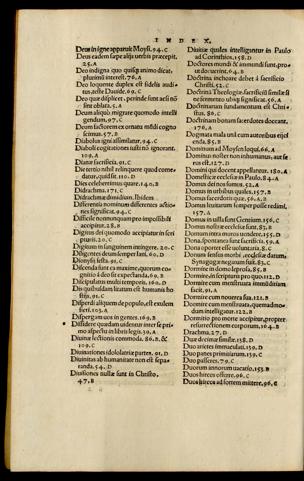 INDEX.
Deus in igne apparuit Moysi. 94. C
Deus eadem sæpe aliis verbis præcepit.
25. A
Deo indigna quo quisque animo dicat,
plurimū interest. 76. A
Deo loquente duplex est fidelis
Deo quæ displicet, perinde sunt aeſi nō
sint oblata. 5. A
Deum aliquo migrare quomodo intelli
gendum, 97. C
Deum factorem ex ornatu mūdi cogno
scimus. 57. B
Diabolus igni assimilatur. 94. C
Diaboli cogitationes aliis nō ignorant.
109. A
Dierum sacrificia. 91. C
Dies celeberrimus quare. 140. B
Didrachma. 171. C
Didrachmæ dimidium. Ibidem.
Differentia nominum differentes actio
nes significat. 94. C
Difficile nonnunquam pro impossibili
accipitur. 28. B
Digitus dei quomodo accipiatur in scri
pturis. 20. C
Digitum in sanguinem intingere. 20. C
Diligentes deum semper sani. 60. D
Dionysij festa. 91. C
Discenda sunt ea maxime, quorum co
gnitio à deo sit expectanda. 69. B
Discipulatus multi temporis. 160. D
Dis quibusdam litatum est humanis ho
stijs. 91. C
Disperdi aliquem de populo, est exulem
fieri. 103. A
Dispergam uos in gentes. 169. B
Diffidere quædam uidentur inter se pri
mo aspectu in libris legis. 39. A
Diuinæ lectionis commoda. 86. B. &
109. C
Diuinationes idololatriæ partes. 91. D
Diuinitas ab humanitate non est sepa-
randa. 54. D
Diuisiones nullæ sunt in Christo.
47. B
Diuitiæ quales intelligantur in Paulo
ad Corinthios. 158. D
Doctores mundi & immundi sunt. pro=
ut docuerint. 64. B
Doctrina inchoare debet à sacrificio
Christi. 52. C
Doctrina Theologiæ, sacrificij similæ si
ne fermento ubique significat. 56. A
Doctrinarum fundamentum est Chri=
stus. 86. C
Doctrinam bonam facer dotes doceant.
176. A
Dogmata mala unà cum autoribus eijci
enda. 85. B
Dominum ad Moysen loqui. 66. A
Dominus noster non inhumanus, aut se
rus est. 127. D
Domini qui docent appellantur. 180. A
Domestica ecclesia in Paulo. 84. A
Domus dei nos sumus. 52. A
Domus in urbibus quales. 157. B
Domus sacerdotis quæ. 56. A. B
Domus leuitarum semper posse redimi.
157. A
Domus in uilla sunt Gentium. 156. C
Domus nostra ecclesia est. 87. B
Domum intra muros uendere. 155. D
Dona spontanea sunt sacrificia. 59. A
Dona oportet esse uoluntaria. 8. C
Dormire in domo leprosa. 85. B
Dormire, in scriptura pro quo. 112. D
Dormire cum menstruata immundiriam
facit. 91. A
Dormire cum nouerca sua. 121. B
Dormire cum menstruata, quemadmo=
dum intelligitur. 122. B
Dormitio pro morte accipitur, propter
resurrectionem corporum. 164. B
Drachma. 27. D
Duæ decimæ similæ. 138. D
Duo arietes immaculati. 139. D
Duo panes primitiarum. 139. C
Duo passeres. 79. C
Duorum annorum uacatio. 153. B
Duos hircos offerre. 96. C
Duos hircos ad sortem mittere, 96. C